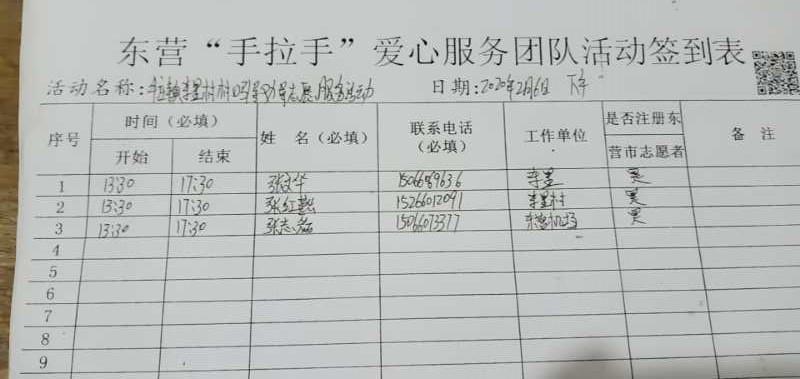 东营“手拉手”爱心服务团队活动签到表
活动名称：李星村村口 志愿服务活动 日期：2020年2月6日 下午
序号 时间（必填） 姓 名（必填） 联系电话（必填） 工作单位 是否注册东营市志愿者 备 注
开始 结束
1 13:30 17:30 张文华 是
2 13:30 17:30 张红 15266012091 李星村 是
3 13:30 17:30 张志磊 15066073377 东营机场 是
4
5
6
7
8
9